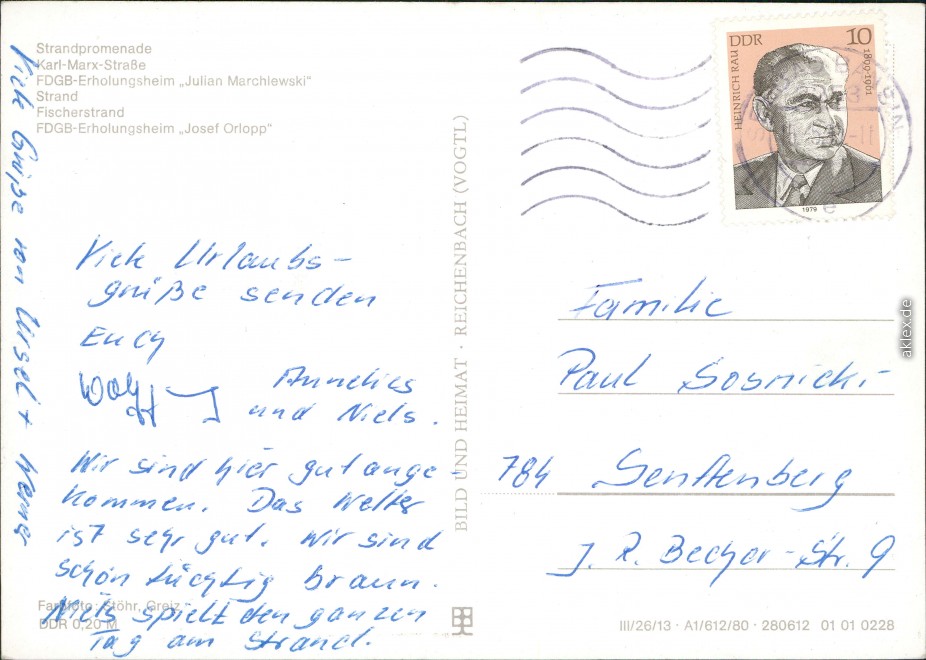 Strandpromenade
Karl-Marx-Straße
FDGB-Erholungsheim „Julian Marchlewski“
Strand
Fischerstrand
FDGB-Erholungsheim „Josef Orlopp“
Viele Grüße von Ursel + Werner
Viele Urlaubs-
grüße senden
Euch
Wolfg. Annelies
und Niels.
Wir sind hier gut ange-
kommen. Das Wetter
ist sehr gut. Wir sind
schon tüchtig braun.
Niels spielt den ganzen
Tag am Strand.
Farbfoto: Stöhr, Greiz
DDR 0,20 M
BILD UND HEIMAT · REICHENBACH (VOGTL)
DDR 10
HEINRICH RAU
1899-1961
1979
Familie
Paul Sosnicki
784 Senftenberg
J. R. Becher-Str. 9
III/26/13 · A1/612/80 · 280612 01 01 0228
aklex.de